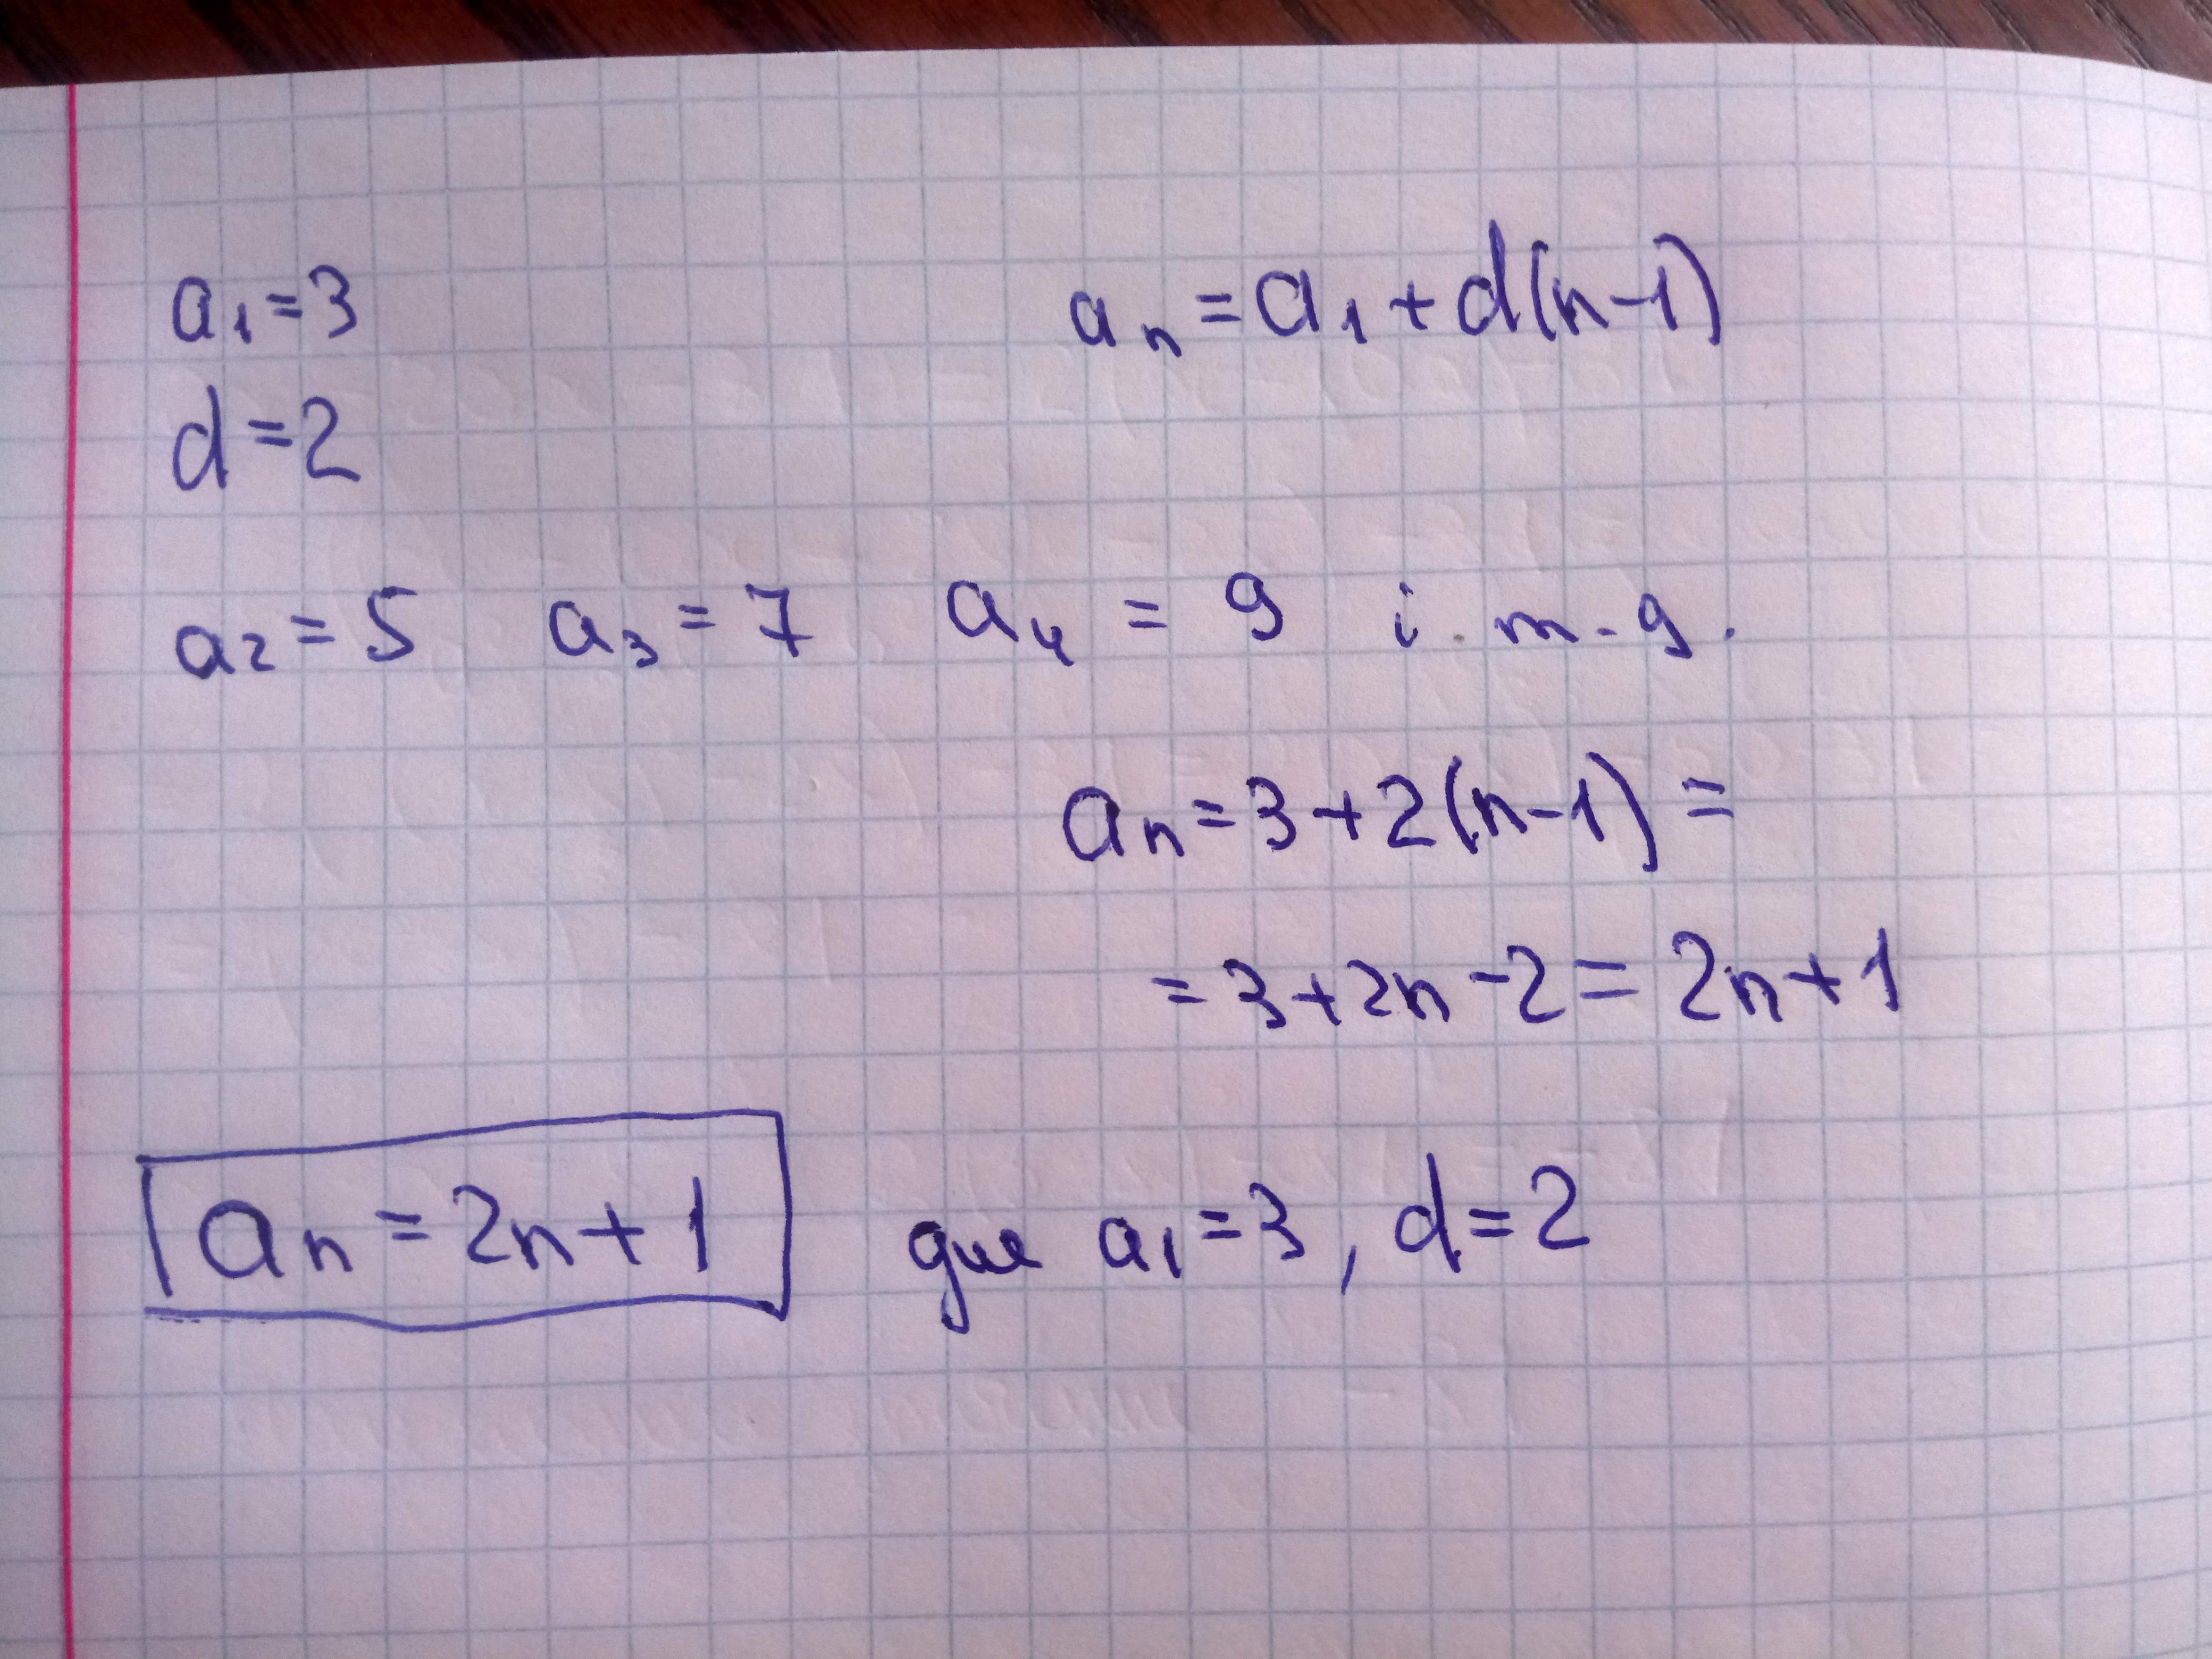 a₁=3
aₙ=a₁+d(n-1)
d=2
a₂=5 a₃=7 a₄=9 і т.д.
aₙ=3+2(n-1)=
=3+2n-2=2n+1
aₙ=2n+1 для a₁=3, d=2